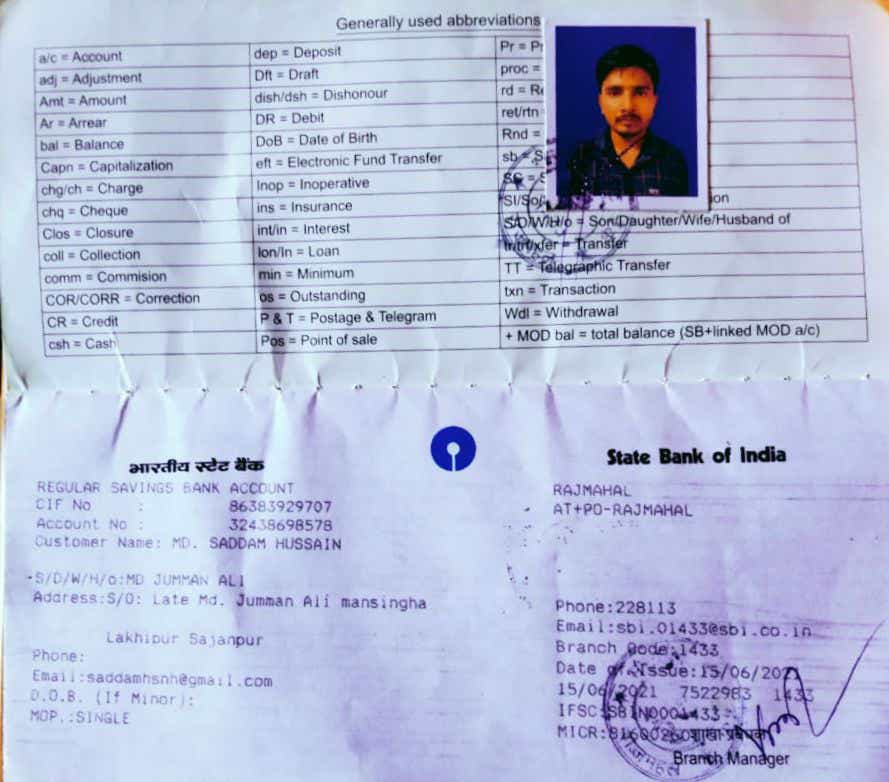 Generally used abbreviations
a/c = Account dep = Deposit Pr =
adj = Adjustment Dft = Draft proc =
Amt = Amount dish/dsh = Dishonour rd =
Ar = Arrear DR = Debit ret/rtn
bal = Balance DoB = Date of Birth Rnd =
Capn = Capitalization eft = Electronic Fund Transfer sb =
chg/ch = Charge Inop = Inoperative SC =
chq = Cheque ins = Insurance
Clos = Closure int/in = Interest S/D/W/H/o = Son/Daughter/Wife/Husband of
coll = Collection lon/ln = Loan = Transfer
comm = Commision min = Minimum TT = Telegraphic Transfer
COR/CORR = Correction os = Outstanding txn = Transaction
CR = Credit P & T = Postage & Telegram Wdl = Withdrawal
csh = Cash Pos = Point of sale + MOD bal = total balance (SB+linked MOD a/c)
भारतीय स्टेट बैंक
REGULAR SAVINGS BANK ACCOUNT
CIF No : 86383929707
Account No : 32438698578
Customer Name: MD. SADDAM HUSSAIN
S/D/W/H/o:MD JUMMAN ALI
Address:S/O: Late Md. Jumman Ali mansingha
Lakhipur Sajanpur
Phone:
Email:saddamhsnh@gmail.com
D.O.B. (If Minor):
MOP.:SINGLE
State Bank of India
RAJMAHAL
AT+PO-RAJMAHAL
Phone:228113
Email:sbi.01433@sbi.co.in
Branch Code:1433
Date of Issue:15/06/2021
15/06/2021 7522983 1433
IFSC:SBIN0001433
MICR: शाखा प्रबंधक
Branch Manager